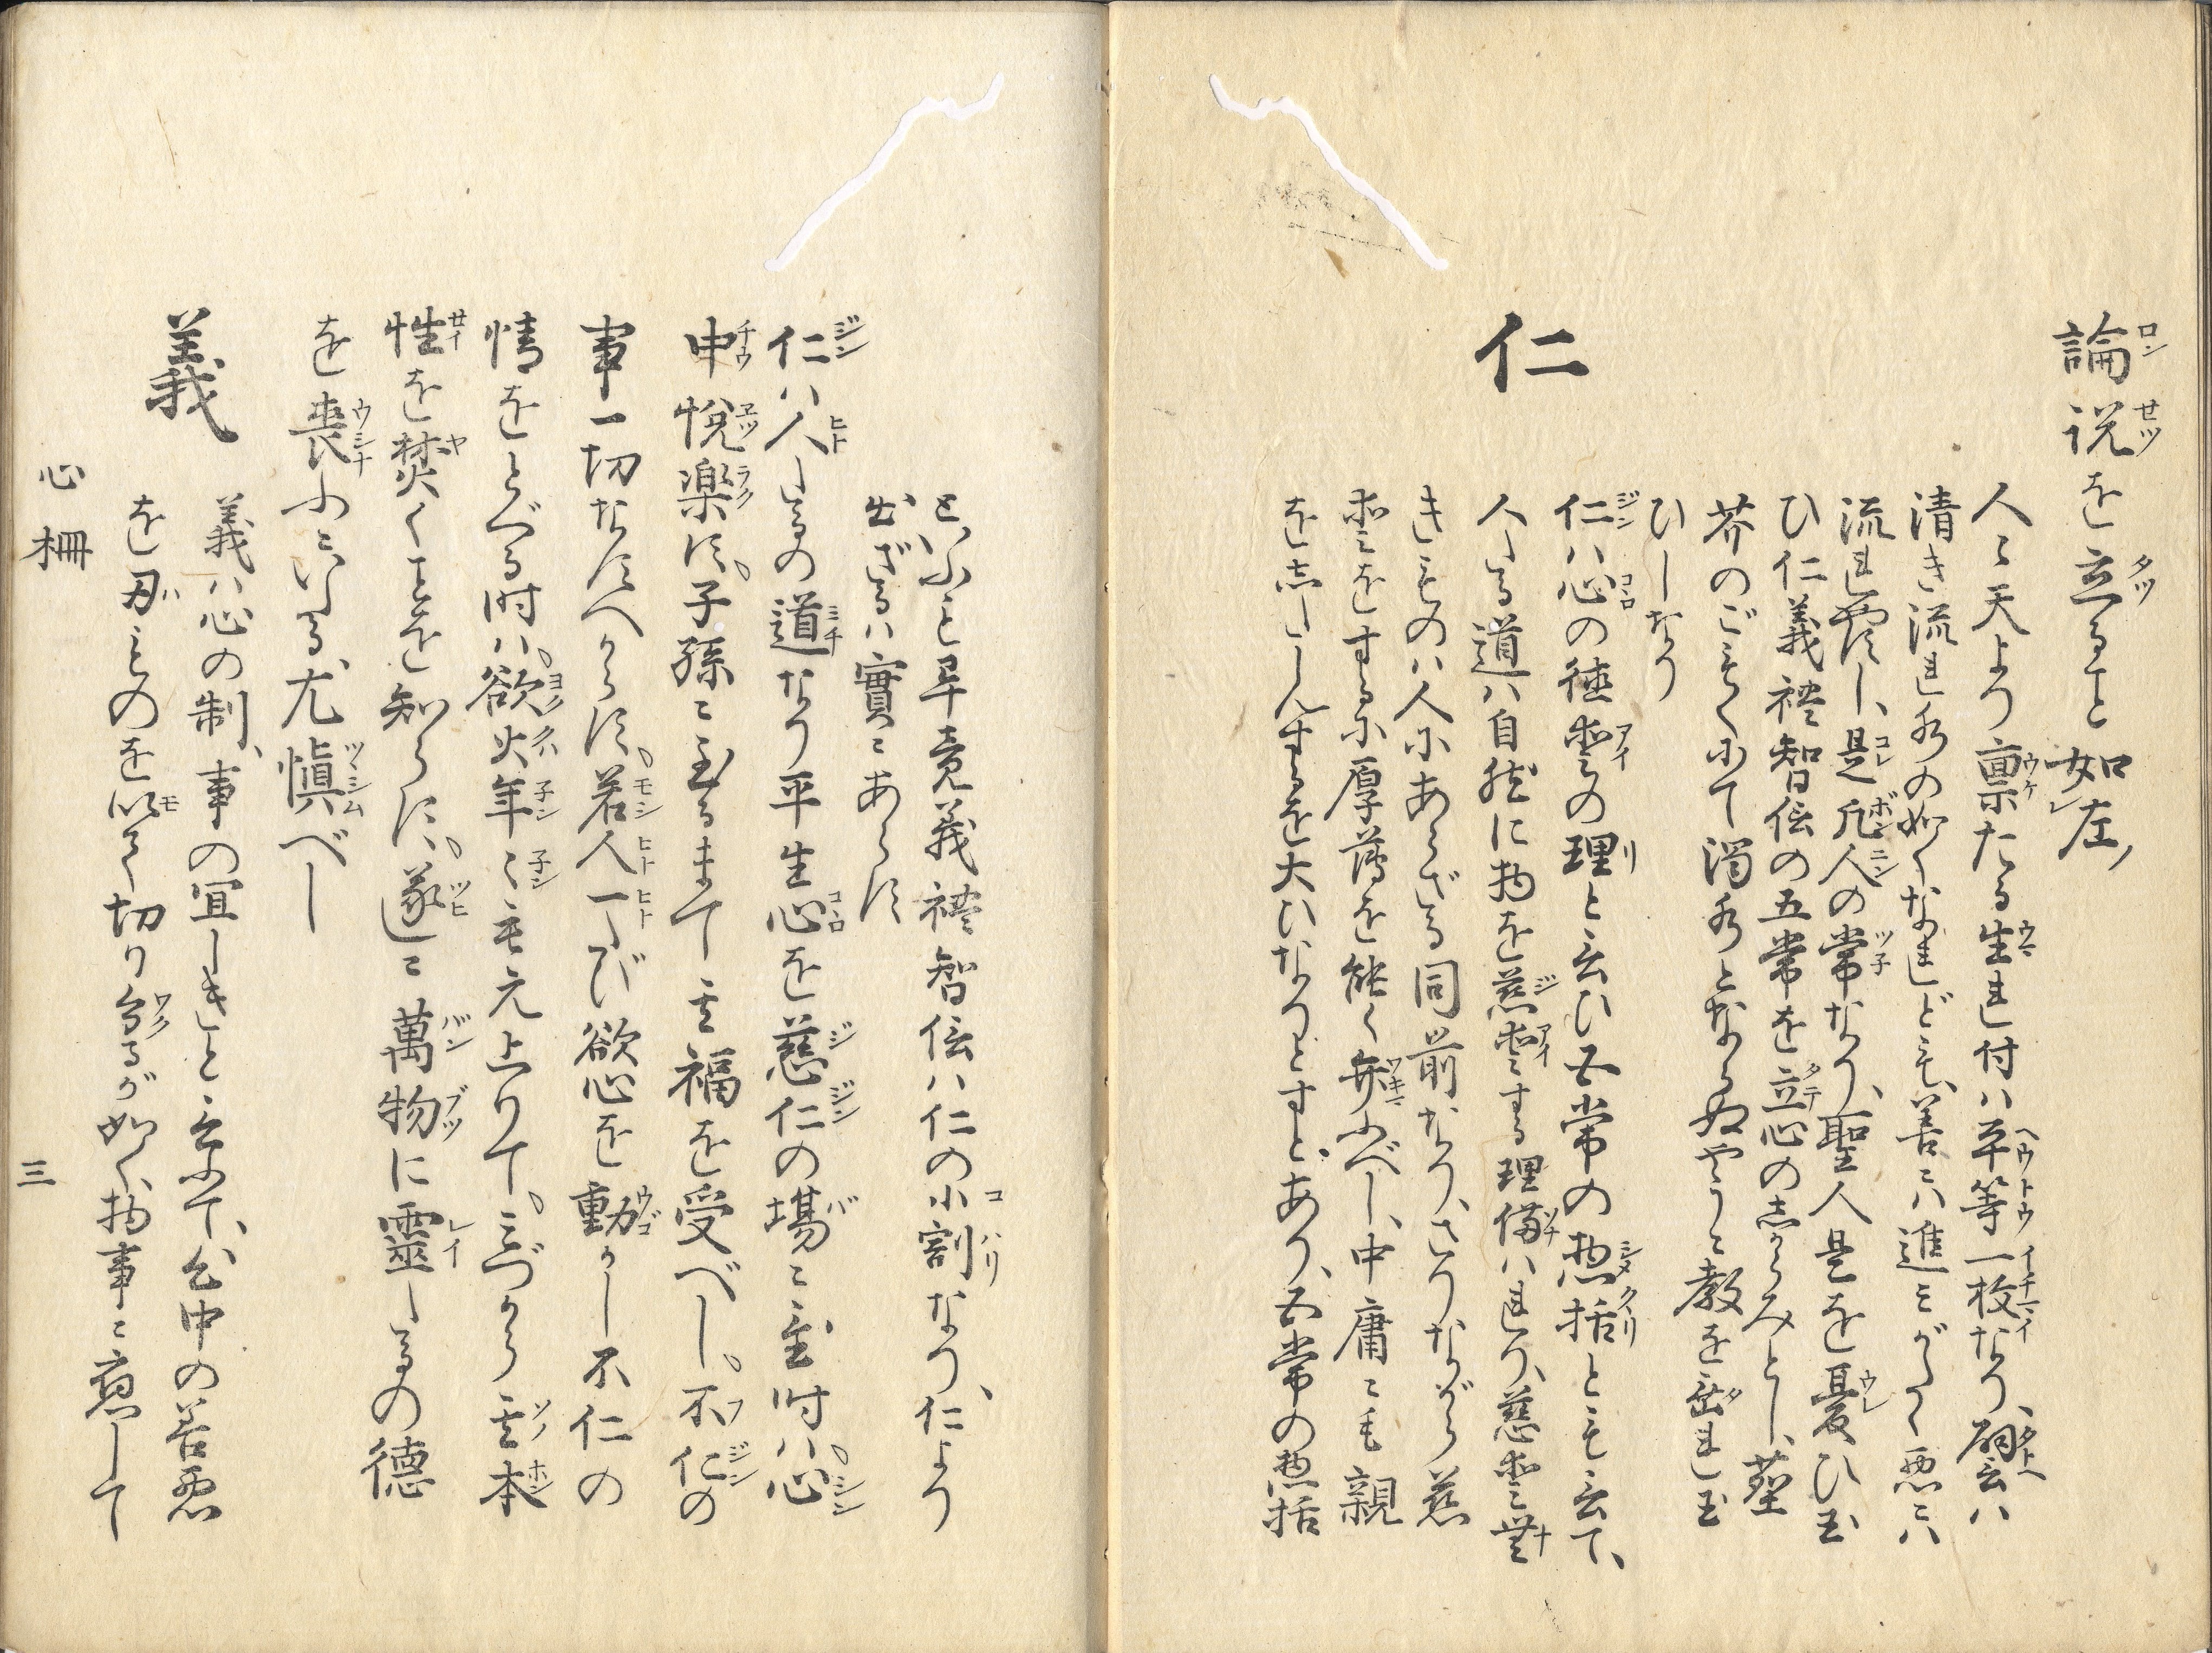 論説を立ること如左
人〻天より禀たる生れ付ハ平等一枚なり、譬ハ
清き流れ水の如くなれども、善ニハ進ミがたく悪ニハ
流れ安し、是凡人の常なり、聖人是を憂ひ玉
ひ仁義禮智信の五常を立心の志がらみとし、塵
芥のごもくにて濁水とならぬやうニ教を垂れ玉
ひしなり
仁
仁ハ心の徳愛の理と云ひ五常の惣括とも云て、
人たる道ハ自然に物を慈愛する理備ハれり、慈愛無
きものハ人にあらざる同前なり、さりながら慈
愛をするに厚薄を能く弁ふべし、中庸ニも親
を志たしんするを大ひなりとすと、あり、五常の惣括
といふも畢竟義禮智信ハ仁の小割なり、仁より
出ざるハ實ニあらず
仁ハ人たるの道なり平生心を慈仁の場ニ至時ハ、心
中悦楽す、子孫ニ至るまて其福を受べし、不仁の
事一切なすへからず、若人一たび欲心を動かし不仁の
情をとべる時ハ、欲火年〻も元上りて、みづから其本
性を焚くことを知らず、遂ニ萬物に靈たるの德
を喪ふにいたる、尤愼べし
義
義ハ心の制、事の宜しきこと云て、心中の善悪
を刃ものを以て切り分るが如く、物事ニ應して
心柵
三